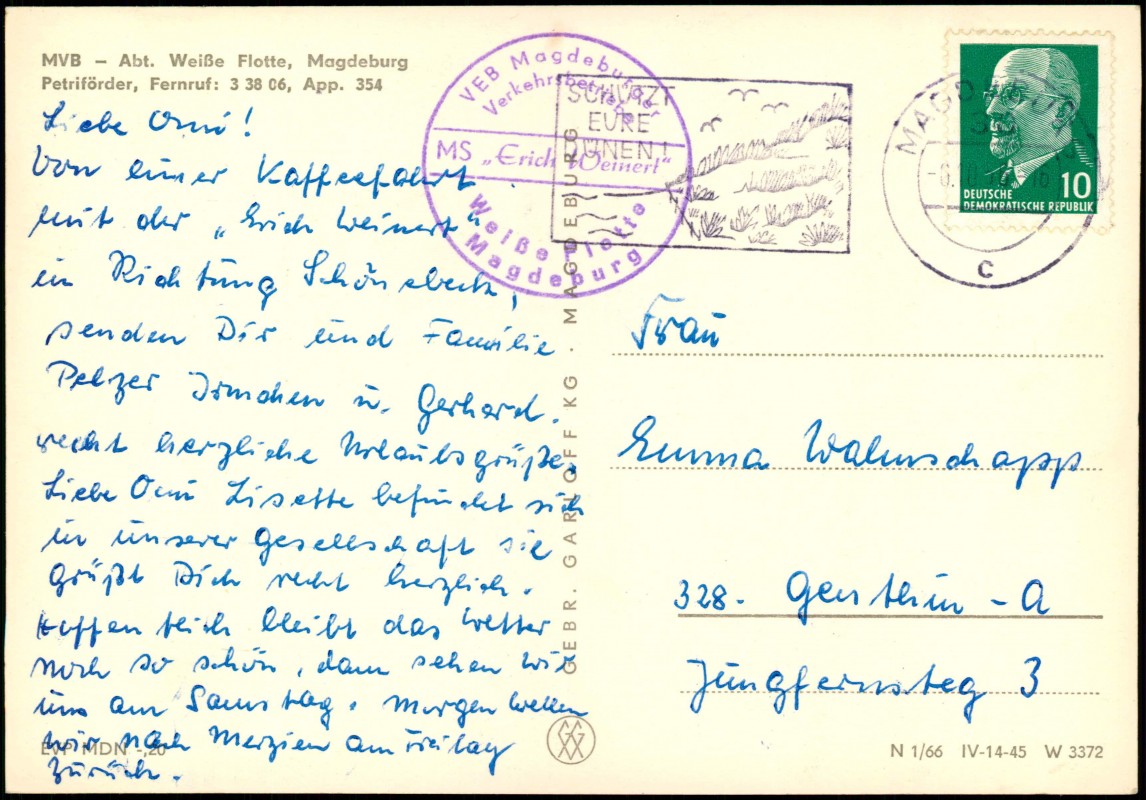 MVB – Abt. Weiße Flotte, Magdeburg
Petriförder, Fernruf: 3 38 06, App. 354
Liebe Omi!
Von einer Kaffeefahrt
mit der „Erich Weinert"
in Richtung Schönebeck,
senden Dir und Familie
Pelzer Irmchen u. Gerhard.
recht herzliche Urlaubsgrüße.
Liebe Omi Lisette befindet sich
in unserer Gesellschaft sie
grüßt Dich recht herzlich.
Hoffentlich bleibt das Wetter
noch so schön, dann sehen wir
uns am Samstag. Morgen wollen
wir nach Merzien am Freitag
zurück.
EVP MDN -,20
VEB Magdeburger
Verkehrsbetriebe
MS „Erich Weinert"
Weiße Flotte
Magdeburg
SCHÜTZT
EURE
DÜNEN!
MAGDEBURG
C
DEUTSCHE
DEMOKRATISCHE REPUBLIK
10
GEBR. GARLOFF KG · MAGDEBURG
Frau
Emma Walmschapp
328. Genthin - A
Jungfernsteg 3
N 1/66 IV-14-45 W 3372